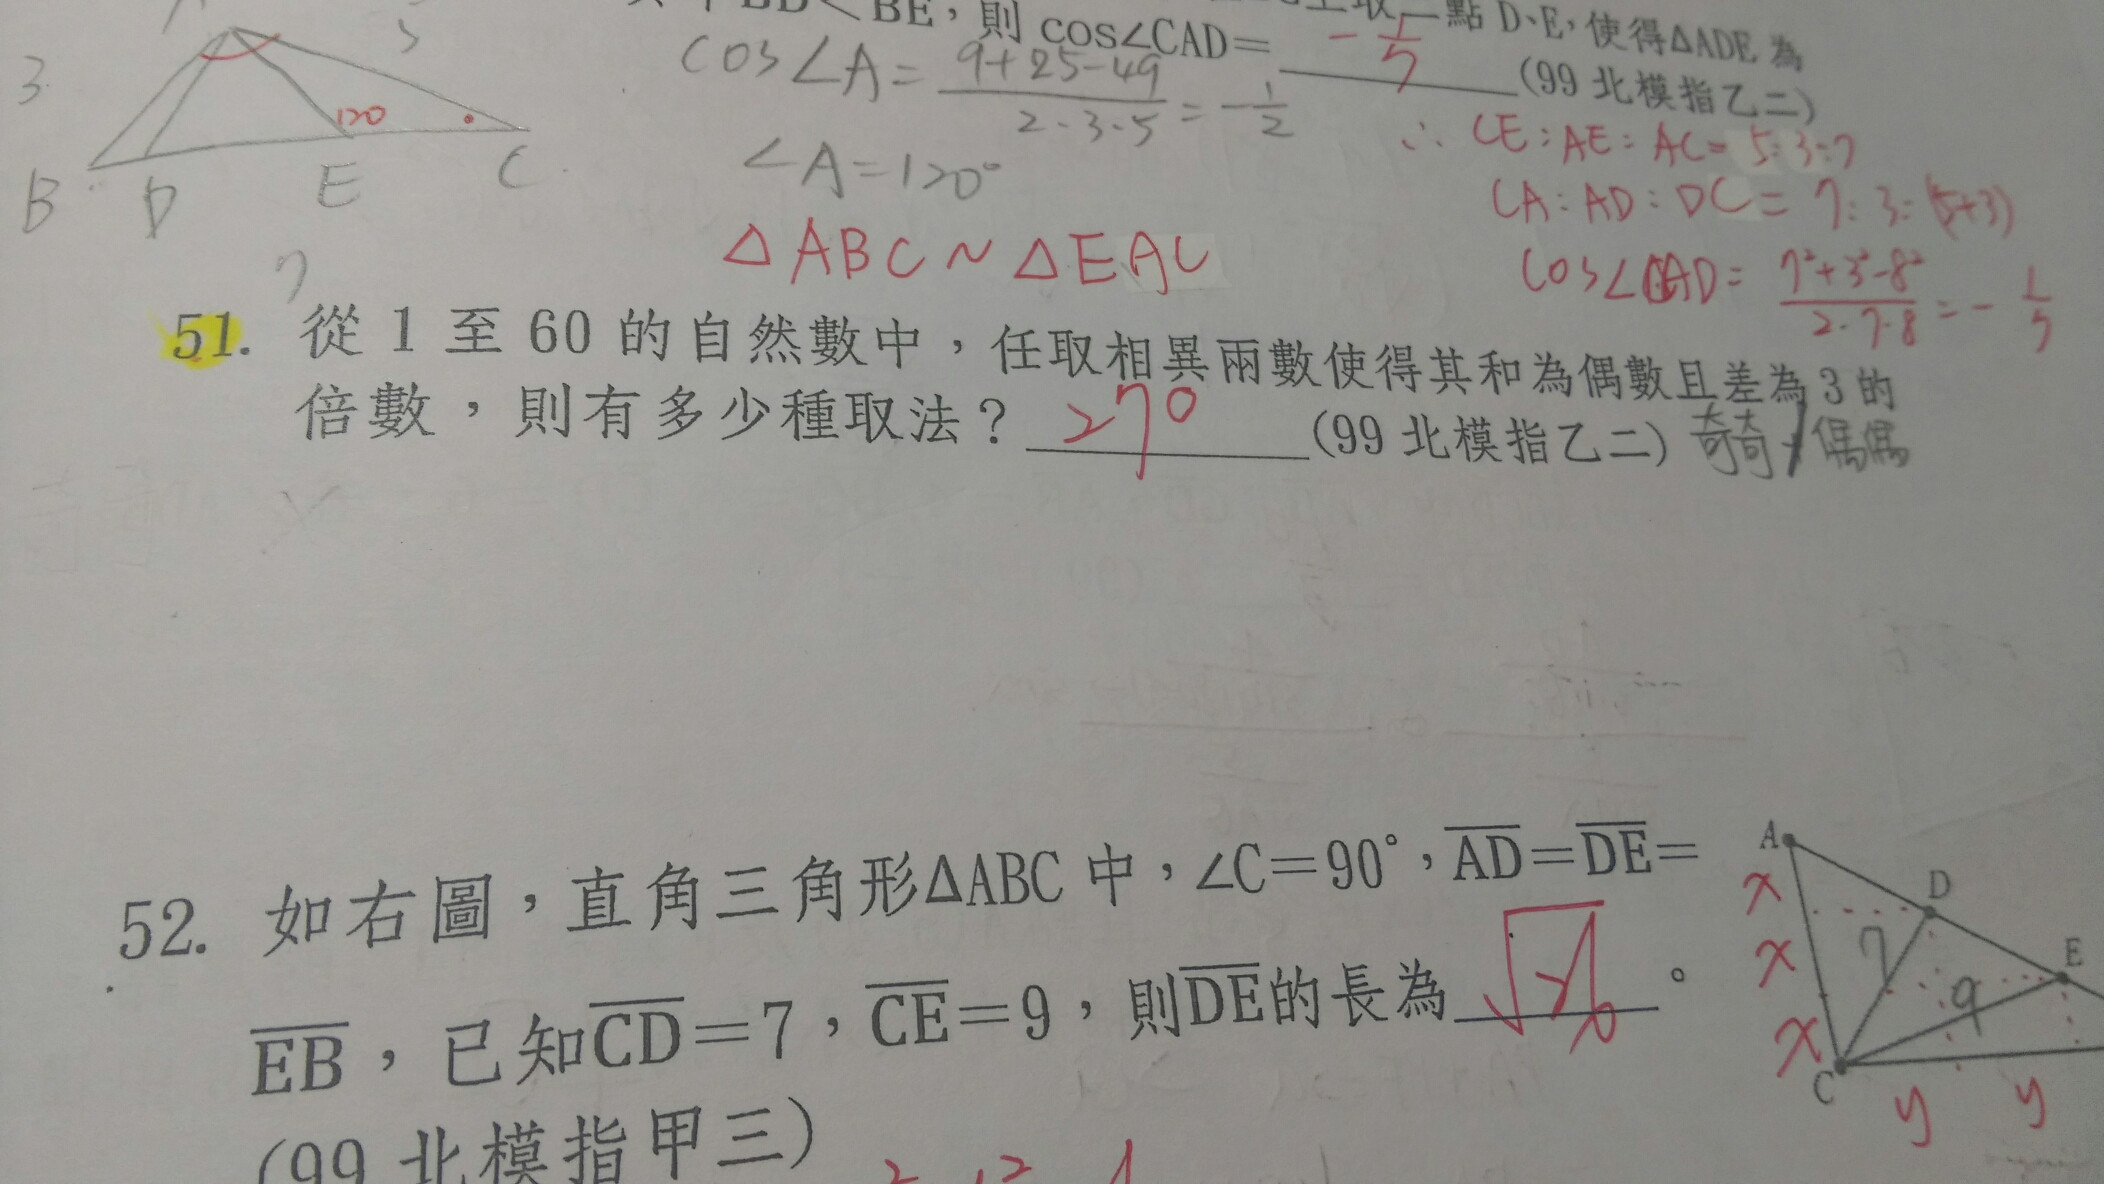 BE，則 cos∠CAD= -1/7
點 D、E，使得ΔADE 為
(99 北模指乙二)
3
5
120
B D E C
7
COS∠A = (9+25-49)/(2·3·5) = -1/2
∠A=120°
△ABC ~ △EAC
∴ CE:AE:AC= 5:3:7
CA:AD:DC = 7:3:(5+3)
cos∠CAD= (7²+3²-8²)/(2·7·8) = -1/7
51. 從 1 至 60 的自然數中，任取相異兩數使得其和為偶數且差為 3 的
倍數，則有多少種取法？ 270 (99 北模指乙二) 奇奇/偶偶
52. 如右圖，直角三角形ΔABC 中，∠C=90°，AD=DE=
EB，已知CD=7，CE=9，則DE的長為 √26 。
(99 北模指甲三)
A
x
D
x
7
E
9
x
C
y y